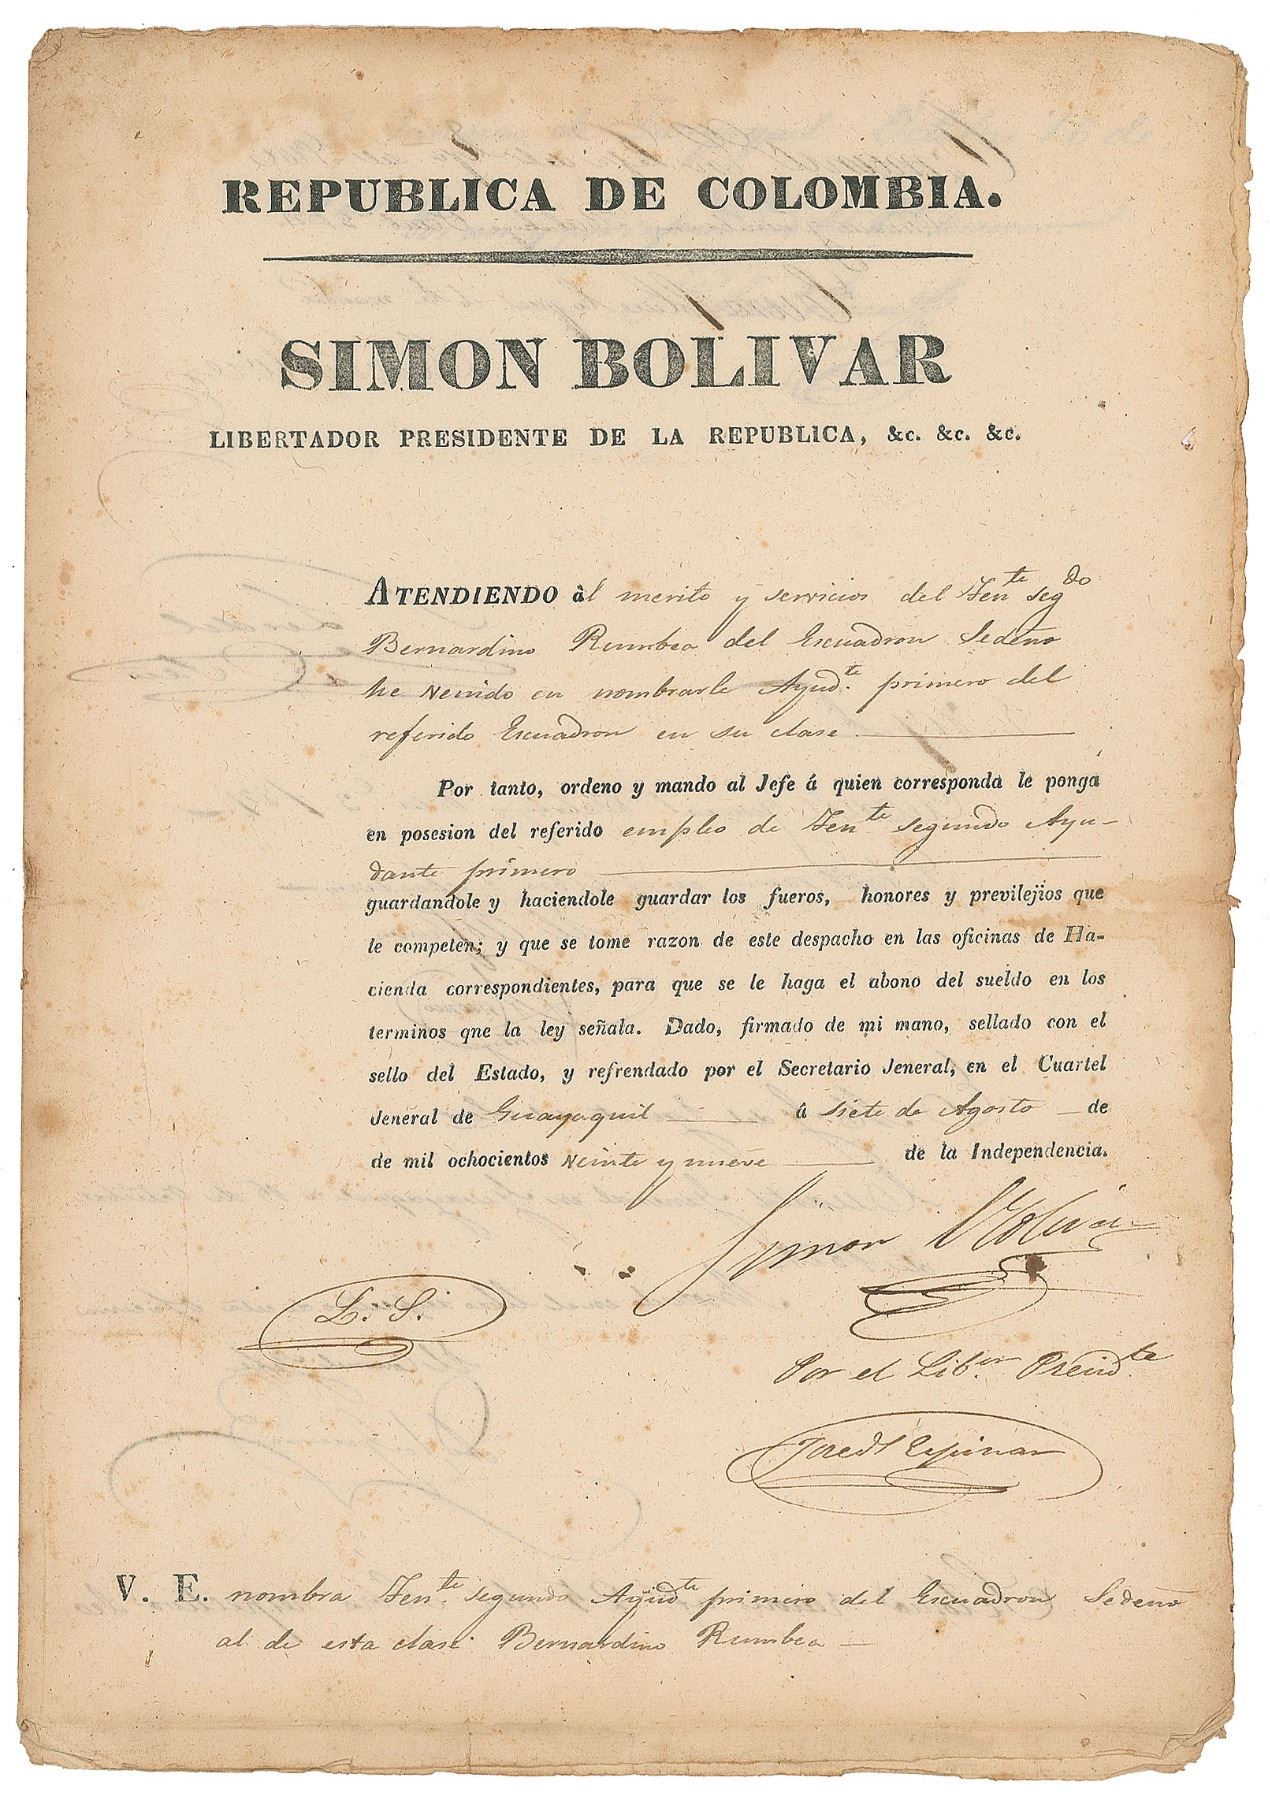 REPUBLICA DE COLOMBIA.
SIMON BOLIVAR
LIBERTADOR PRESIDENTE DE LA REPUBLICA, &c. &c. &c.
ATENDIENDO àl merito y servicios del Ten.te seg.do
Bernardino Rumbea del Escuadron Sedeño
he venido en nombrarle Ayud.te primero del
referido Escuadron en su clase
Por tanto, ordeno y mando al Jefe á quien corresponda le ponga
en posesion del referido empleo de Ten.te segundo Ayu-
dante primero
guardandole y haciendole guardar los fueros, honores y previlejios que
le competen; y que se tome razon de este despacho en las oficinas de Ha-
cienda correspondientes, para que se le haga el abono del sueldo en los
terminos qne la ley señala. Dado, firmado de mi mano, sellado con el
sello del Estado, y refrendado por el Secretario Jeneral, en el Cuartel
Jeneral de Guayaquil á siete de Agosto de
de mil ochocientos veinte y nueve de la Independencia.
Simon Bolivar
L. S.
Por el Lib.or Presid.te
José D. Espinar
V. E. nombra Ten.te segundo Ayud.te primero del Escuadron Sedeño
al de esta clase Bernardino Rumbea